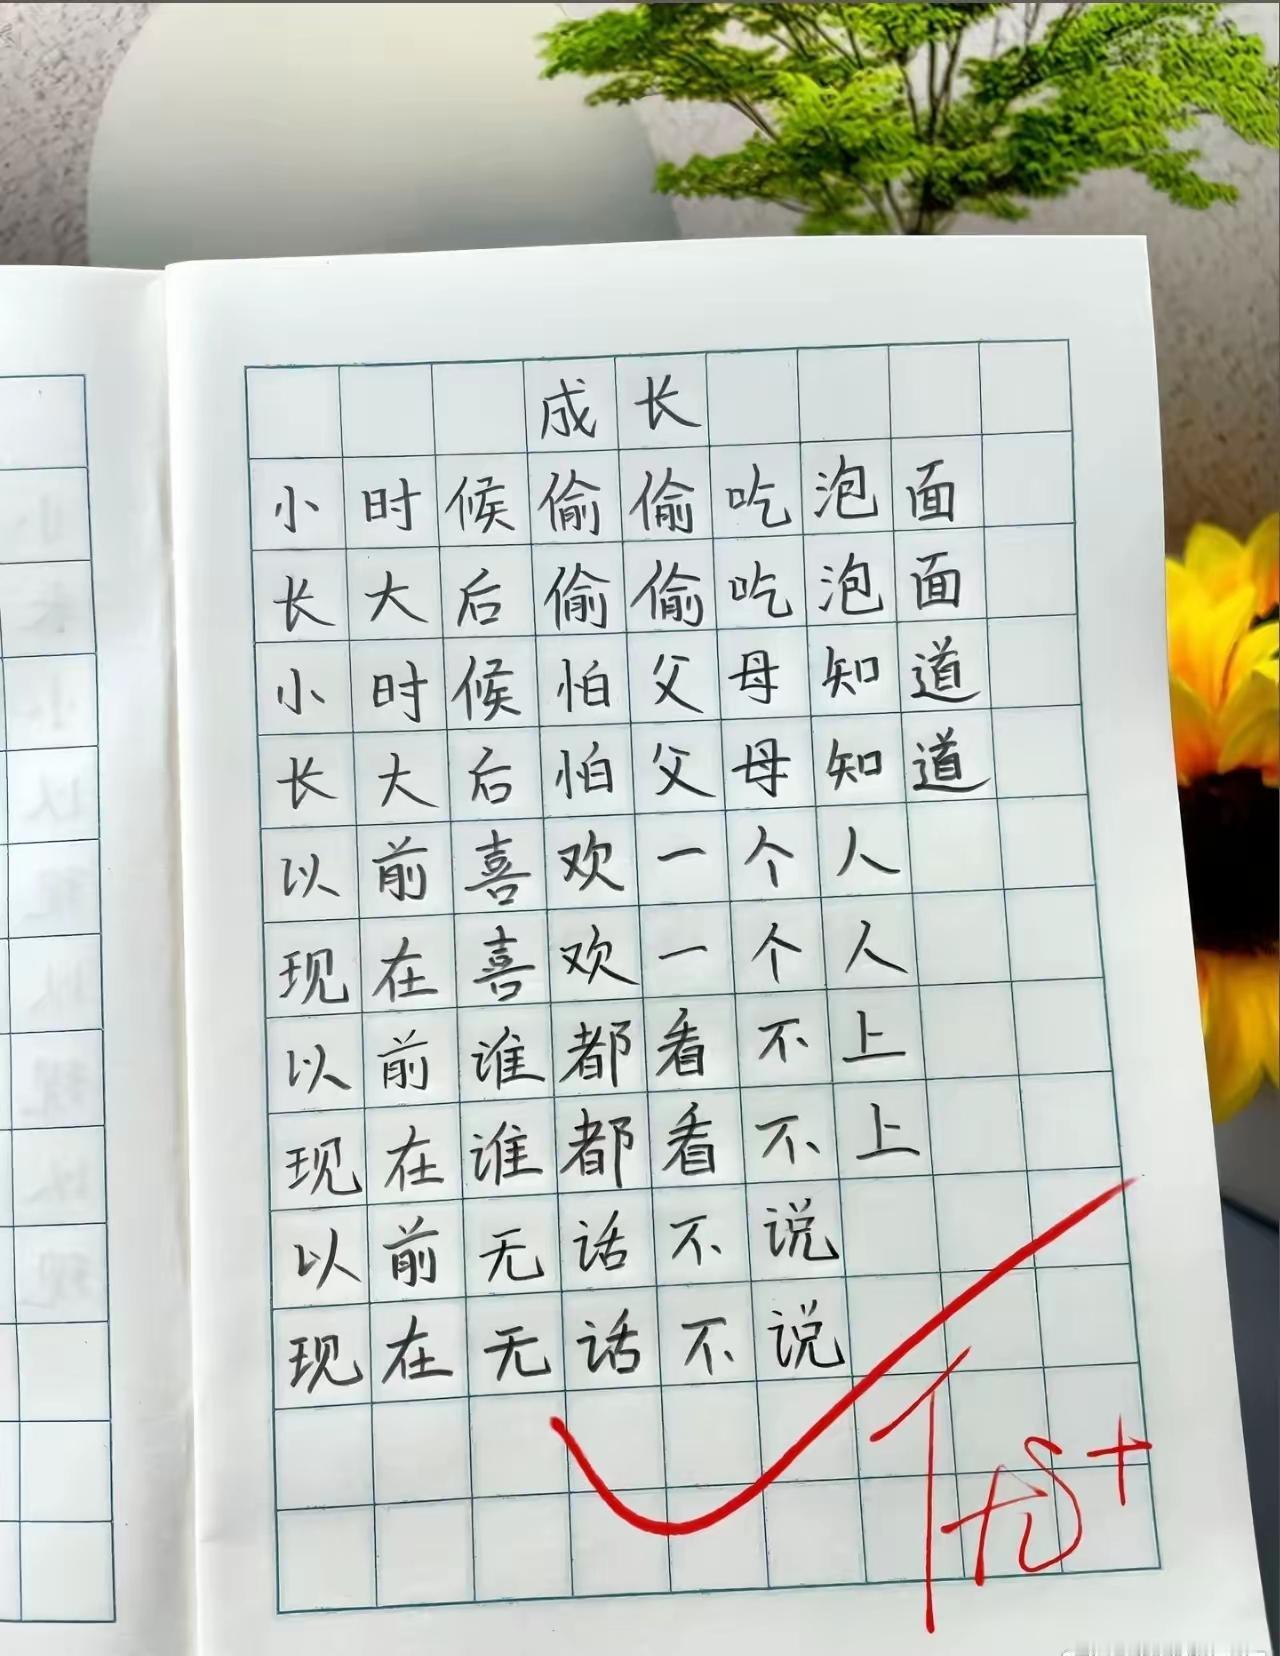 成长
小时候偷偷吃泡面
长大后偷偷吃泡面
小时候怕父母知道
长大后怕父母知道
以前喜欢一个人
现在喜欢一个人
以前谁都看不上
现在谁都看不上
以前无话不说
现在无话不说